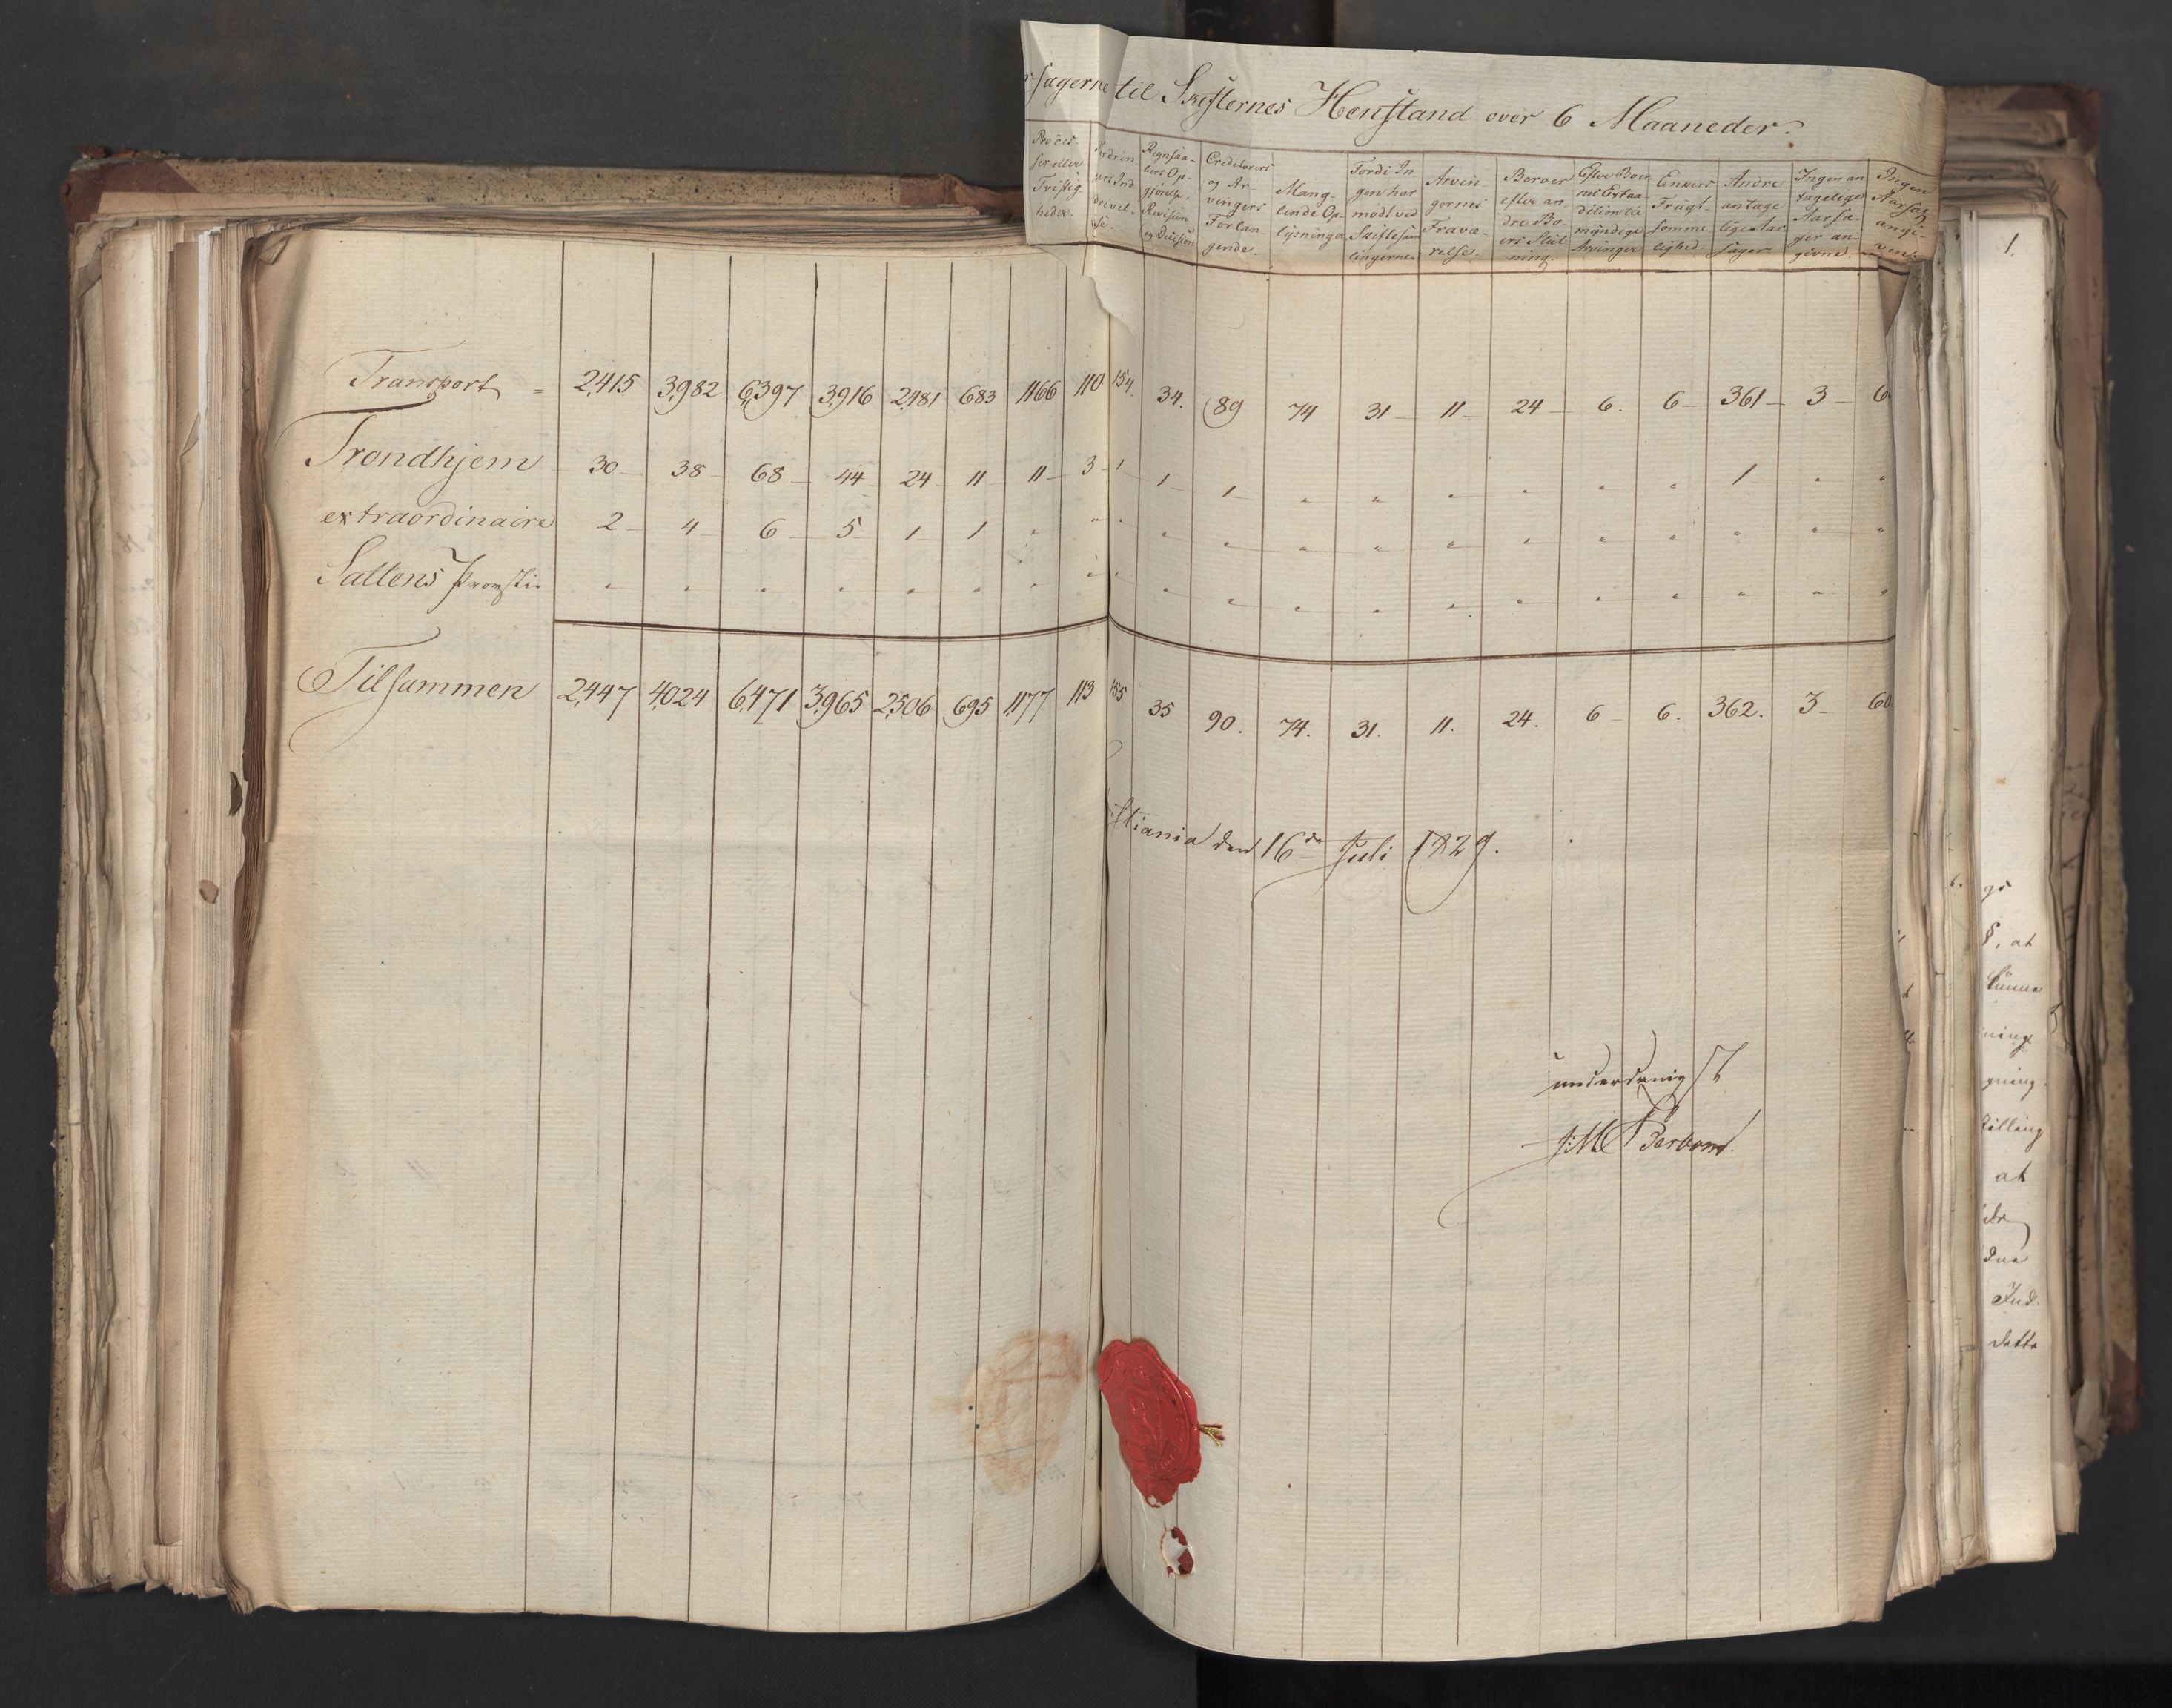 sagerne til Skifternes Henstand over 6 Maaneder.
Proces- ser eller Tvistig- heder.
Regnska- bers Op- gjørelse, Revision og Decision
Creditorers og Ar- vingers Forlan- gende.
Mang- lende Op- lysninger
Fordi In- gen har mødt ved Skiftesam- lingerne.
Arvin- gernes Fravæ- relse.
Beroer efter an- dre Bo- ers Slut- ning.
Efter Boer- nes Extra- dition til myndige Arvinger
Enkers Frugt- somme- lighed.
Andre antage- lige Aar- sager
Ingen an- tagelige Aarsa- ger an- givne.
Ingen Aarsag angi- ven.
Transport = 2,415 3,982 6,397 3,916 2,481 683 1,166 110 154. 34. 89 74 31 11 24 6. 6 361 3 6
Trondhjem 30 38 68 44 24 11 11 3 1 1 1 " " " " " " 1 " "
extraordinaire 2 4 6 5 1 1 " " " " " " " " " " " " " "
Saltens Provsti. " " " " " " " " " " " " " " " " " " " "
Tilsammen 2,447 4,024 6,471 3,965 2,506 695 1,177 113 155 35 90. 74. 31. 11. 24. 6 6. 362. 3 60
stiania den 16de Juli 1829.
underdanigst
1.
§, at
kunne
ning
gning
stilling
at
dre
Ind-
dette